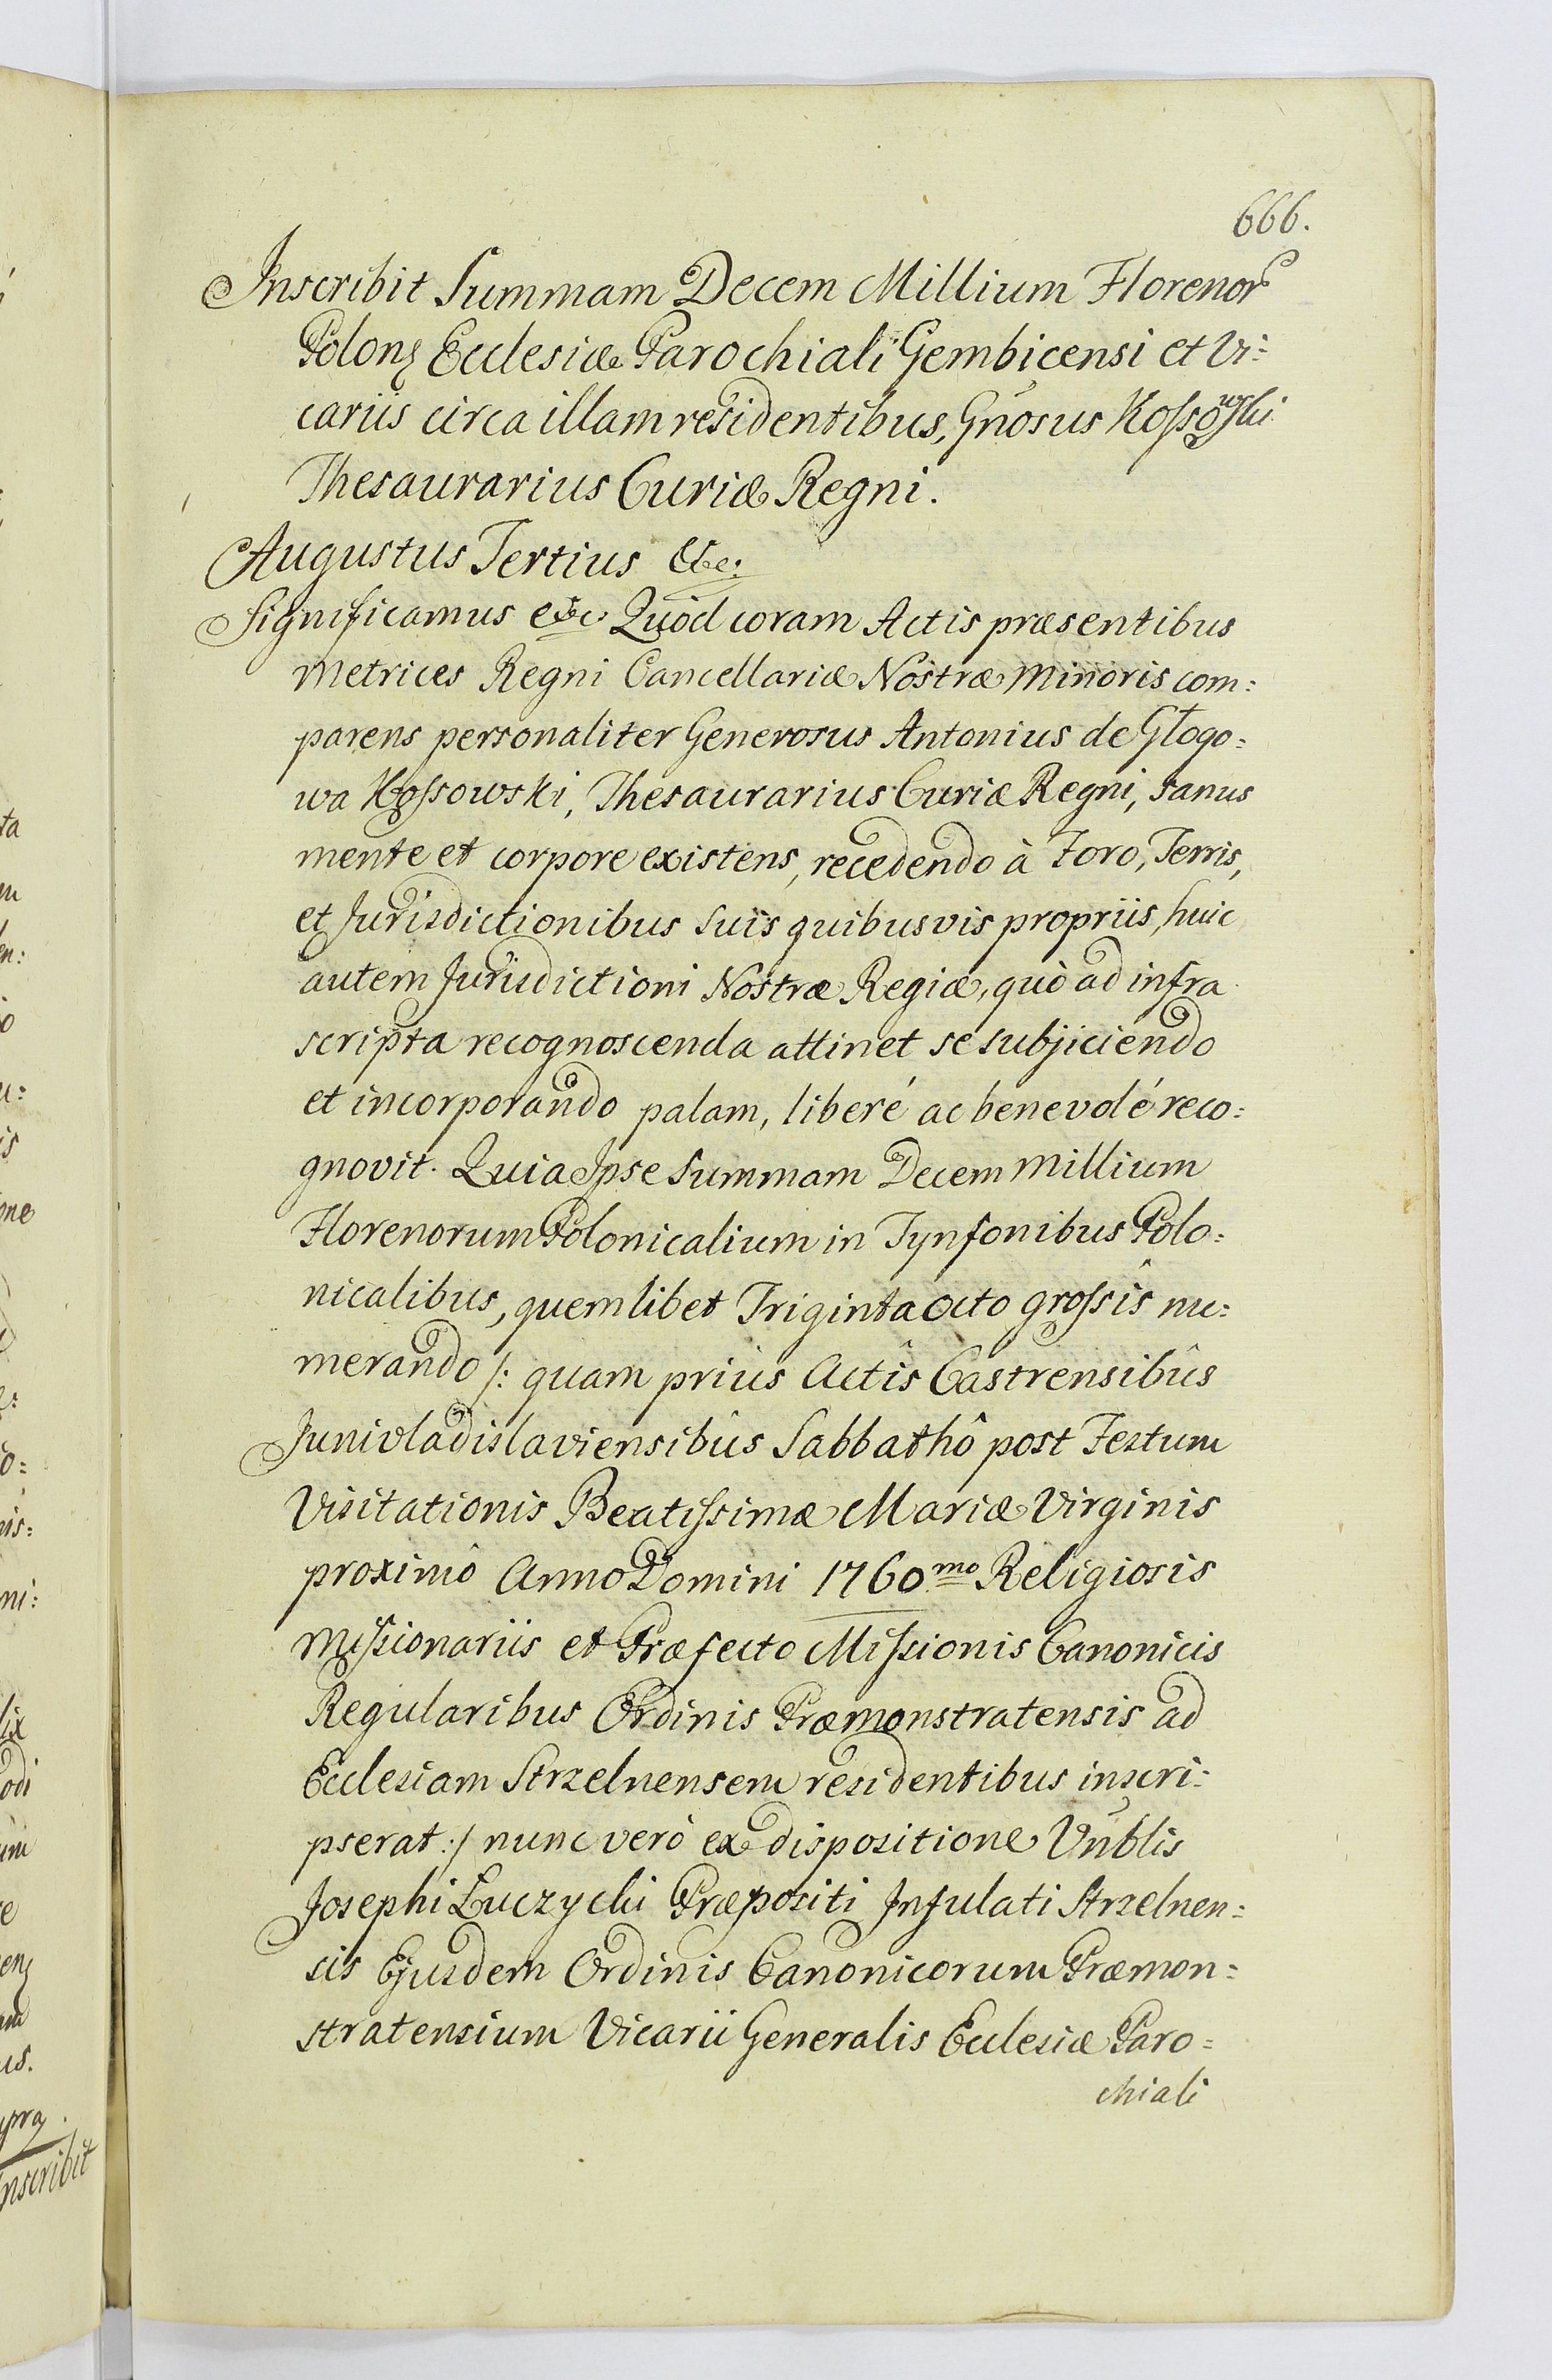 666.
Inscribit Summam Decem Millium Florenor
Polon Ecclesiæ Parochiali Gembicensi et Vi:
cariis circa illam residentibus, Gnosus Kossowski
Thesaurarius Curiæ Regni.
Augustus Tertius &c:
Significamus &c Quod coram Actis præsentibus
Metrices Regni Cancellariæ Nostræ Minoris com:
parens personaliter Generosus Antonius de Głogo:
wa Kossowski, Thesaurarius Curiæ Regni, sanus
mente et corpore existens, recedendo à Foro, Terris,
et Jurisdictionibus suis quibusvis propriis, huic
autem Jurisdictioni Nostræ Regiæ, quò ad infra
scripta recognoscenda attinet se subjiciendo
et incorporando palam, liberé ac benevolé reco:
gnovit. Quia Ipse Summam Decem Millium
Florenorum Polonicalium in Tynfonibus Polo:
nicalibus, quemlibet Triginta octo grossîs nu:
merando /: quam prius Actîs Castrensibûs
Junivladislaviensibûs Sabbathô post Festum
Visitationis Beatissimæ Mariæ Virginis
proximô Anno Domini 1760mo Religiosis
Missionariis et Præfecto Missionis Canonicis
Regularibus Ordinis Præmonstratensis ad
Ecclesiam Strzelnensem residentibus inscri:
pserat :/ nunc verò ex dispositione Vnblis
Josephi Łuczycki Præpositi Infulati Strzelnen:
sis Ejusdem Ordinis Canonicorum Præmon:
stratensium Vicarii Generalis Ecclesiæ Paro:
chiali